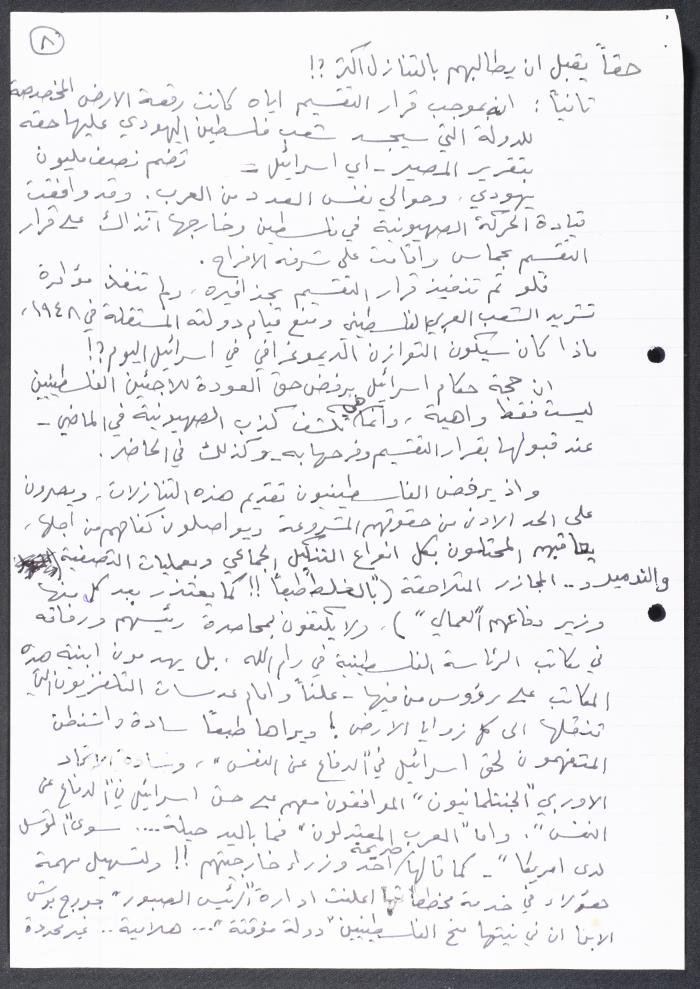 ٨
حقاً يقبل ان يطالبهم بالتنازل اكثر ؟!
ثانياً : انه بموجب قرار التقسيم اياه كانت رقعة الارض المخصصة
للدولة التي سيجسد شعب فلسطين اليهودي عليها حقه
بتقرير المصير - اي اسرائيل - تضم نصف مليون
يهودي ، وحوالي نفس العدد من العرب . وقد وافقت
قيادة الحركة الصهيونية في فلسطين وخارجها آنذاك على قرار
التقسيم بحماس واقامت على شرفه الافراح .
فلو تم تنفيذ قرار التقسيم بحذافيره ، ولم تنفذ مؤامرة
تشريد الشعب العربي الفلسطيني ومنع قيام دولته المستقلة في ١٩٤٨ ،
ماذا كان سيكون التوازن الديموغرافي في اسرائيل اليوم ؟!
ان حجة حكام اسرائيل برفض حق العودة للاجئين الفلسطينيين
ليست فقط واهية ، وانما هي تكشف كذب الصهيونية في الماضي -
عند قبولها بقرار التقسيم وفرحها به - وكذلك في الحاضر .
واذ يرفض الفلسطينيون تقديم هذه التنازلات ، ويصرون
على الحد الادنى من حقوقهم المشروعة ويواصلون كفاحهم من اجلها ،
يعاقبهم المحتلون بكل انواع التنكيل الجماعي وبعمليات التصفية
والتدمير و .. المجازر المتلاحقة ( "بالغلط" طبعاً !! كما يعتذر بعد كل منها
وزير دفاعهم "العمالي" ) ، ولا يكتفون بمحاصرة رئيسهم ورفاقه
في مكاتب الرئاسة الفلسطينية في رام الله ، بل يهدمون ابنية هذه
المكاتب على رؤوس من فيها - علناً وامام عدسات التلفزيون التي
تنقلها الى كل زوايا الارض ! ويراها طبعاً سادة واشنطن
المتفهمون لحق اسرائيل في "الدفاع عن النفس" ، وسادة الاتحاد
الاوربي "الجنتلمانيون" الموافقون معهم على حق اسرائيل في "الدفاع عن
النفس" . واما "العرب المعتدلون" فما باليد حيلة .... سوى "التوسل
لدى امريكا" - كما قالها صريحة احد وزراء خارجيتهم !! ولتسهيل مهمة
هؤلاء في خدمة مخططاتها اعلنت ادارة "الرئيس الصبور" جورج بوش
الابن ان في نيتها منح الفلسطينيين "دولة مؤقتة" ... هلامية .. غير محددة